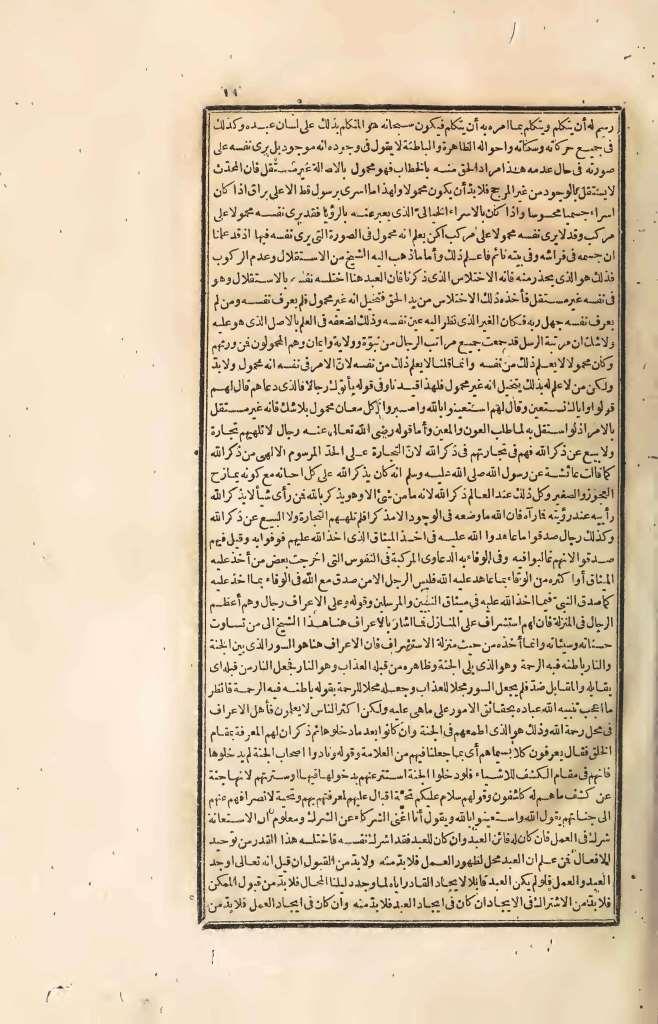 ١١
رسم له أن يتكلم ويتكلم بما أمره به أن يتكلم فيكون سبحانه هو المتكلم بذلك على لسان عبده وكذلك
فى جميع حركاته وسكناته واحواله الظاهرة والباطنة لا يقول فى وجوده انه موجود بل يرى نفسه على
صورته فى حال عدمه هذا مراد الحق منه بالخطاب فهو محمول بالاصالة غير مستقل فان المحدث
لا يستقل بالوجود من غير المرجح فلا بد أن يكون محمولا ولهذا ما اسرى برسول قط الا على براق اذا كان
اسراء جسميا محسوسا واذا كان بالاسراء الخيالى الذى يعبر عنه بالرؤيا فقد يرى نفسه محمولا على
مركب وقد لا يرى نفسه محمولا على مركب لكن يعلم انه محمول فى الصورة التى يرى نفسه فيها اذ قد علمنا
ان جسمه فى فراشه وفى بيته نائم فاعلم ذلك وأما ما ذهب اليه الشيخ من الاستقلال وعدم الركوب
فذلك هو الذى يحذر منه فانه الاختلاس الذى ذكرنا فان العبد هنا اختلسه نفسه بالاستقلال وهو
فى نفسه غير مستقل فأخذه ذلك الاختلاس من يد الحق فتخيل انه غير محمول فلم يعرف نفسه ومن لم
يعرف نفسه جهل ربه فكان الغير الذى نظر اليه عين نفسه وذلك اضعفه فى العلم بالاصل الذى هو عليه
ولا شك ان مرتبة الرسل قد جمعت جميع مراتب الرجال من نبوّة وولاية وايمان وهم المحمولون فمن ورثهم
وكان محمولا لا يعلم ذلك من نفسه وانما قلنا لا يعلم ذلك من نفسه لانّ الامر فى نفسه انه محمول ولا بدّ
ولكن من لا علم له بذلك يتخيل انه غير محمول فلهذا قيدنا وفى قوله يأتوك رجالا فالذى دعاهم قال لهم
قولوا واياك نستعين وقال لهم استعينوا بالله واصبروا فكل معان محمول بلا شك فانه غير مستقل
بالامر اذ لو استقل به لما طلب العون والمعين وأما قوله رضى الله تعالى عنه رجال لا تلهيهم تجارة
ولا بيع عن ذكر الله فهم فى تجارتهم فى ذكر الله لانّ التجارة على الحدّ المرسوم الالهى من ذكر الله
كما قالت عائشة عن رسول الله صلى الله عليه وسلم انه كان يذكر الله على كل احيانه مع كونه يمازح
العجوز والصغير وكل ذلك عند العالم ذكر الله لانه ما من شئ الا وهو يذكر بالله فمن رأى شيأ لا يذكر الله
رأيه عند رؤيته فما رآه فان الله ما وضعه فى الوجود الا مذكرا فلم تلههم التجارة ولا البيع عن ذكر الله
وكذلك رجال صدقوا ما عاهدوا الله عليه فى اخذ الميثاق الذى اخذ الله عليهم فوفوا به وقيل فيهم
صدقوا لانهم غالبوا فيه وفى الوفاء به الدعاوى المركبة فى النفوس التى اخرجت بعض من أخذ عليه
الميثاق أو اكثره من الوفاء بما عاهد عليه الله فليس الرجل الا من صدق مع الله فى الوفاء بما اخذ عليه
كما صدق النبى فيما اخذ الله عليه فى ميثاق النبيين والمرسلين وقوله وعلى الاعراف رجال وهم أعظم
الرجال فى المنزلة فان لهم استشراف على المنازل فما اشار بالاعراف هنا هذا الشيخ الى من تساوت
حسناته وسيئاته وانما أخذه من حيث منزلة الاستشراف فان الاعراف هنا هو السور الذى بين الجنة
والنار باطنه فيه الرحمة وهو الذى يلى الجنة وظاهره من قبله العذاب وهو النار فجعل النار من قبله اى
يقابله والمقابل ضدّ فلم يجعل السور محلا للعذاب وجعله محلا للرحمة بقوله باطنه فيه الرحمة فانظر
ما اعجب تنبيه الله عباده بحقائق الامور على ما هى عليه ولكن اكثر الناس لا يعلمون فأهل الاعراف
فى محل رحمة الله وذلك هو الذى اطمعهم فى الجنة وان كانوا بعد ما دخلوها ثم ذكر ان لهم المعرفة بمقام
الخلق فقال يعرفون كلا بسيماهم أى بما جعلنا فيهم من العلامة وقوله ونادوا اصحاب الجنة لم يدخلوها
فانهم فى مقام الكشف للاشياء فلو دخلوا الجنة استتر عنهم بدخولهم فيها وسترتهم لانها جنة
عن كشف ما هم له كاشفون وقولهم سلام عليكم تحية اقبال عليهم لمعرفتهم بهم وتحية لانصرافهم عنهم
الى جناتهم يقول الله واستعينوا بالله ويقول أنا أغنى الشركاء عن الشرك ومعلوم ان الاستعانة
شرك فى العمل فان كان له فاين العبد وان كان للعبد فقد اشرك نفسه فاختلسه هذا القدر من توحيد
الافعال فمن علم ان العبد محل لظهور العمل فلا بدّ منه ولا بدّ من القبول ان قبل انه تعالى اوجد
العبد والعمل فلو لم يكن العبد قابلا لايجاد القادر اياه لما وجد دليلنا المحال فلا بد من قبول الممكن
فلا بدّ من الاشتراك فى الايجاد ان كان فى ايجاد العبد فلا بد منه وان كان فى ايجاد العمل فلا بد من